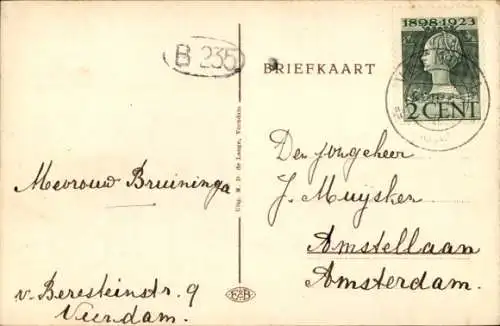 B 235
BRIEFKAART
1898-1923
2 CENT
Mevrouw Bruininga
v. Beresteinstr. 9
Veendam.
Uitg. M. D. de Lange, Veendam
Den jongeheer
J. Muysken
Amstellaan
Amsterdam.